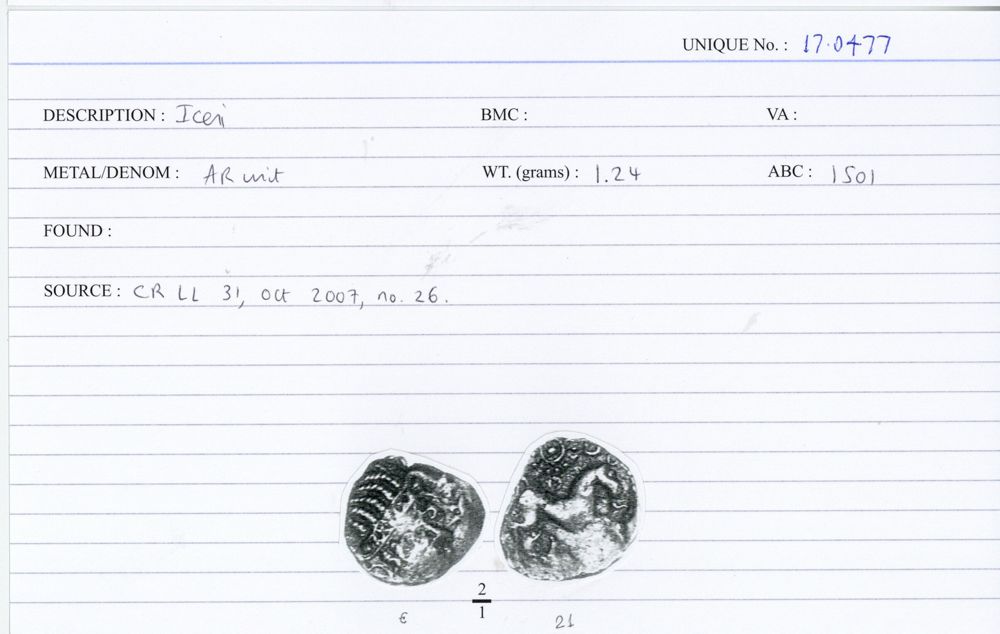 UNIQUE No. : 17.0477
DESCRIPTION : Iceni BMC : VA :
METAL/DENOM : AR unit WT. (grams) : 1.24 ABC : 1501
FOUND :
SOURCE : CR LL 31, Oct 2007, no. 26.
2
1
€ 21